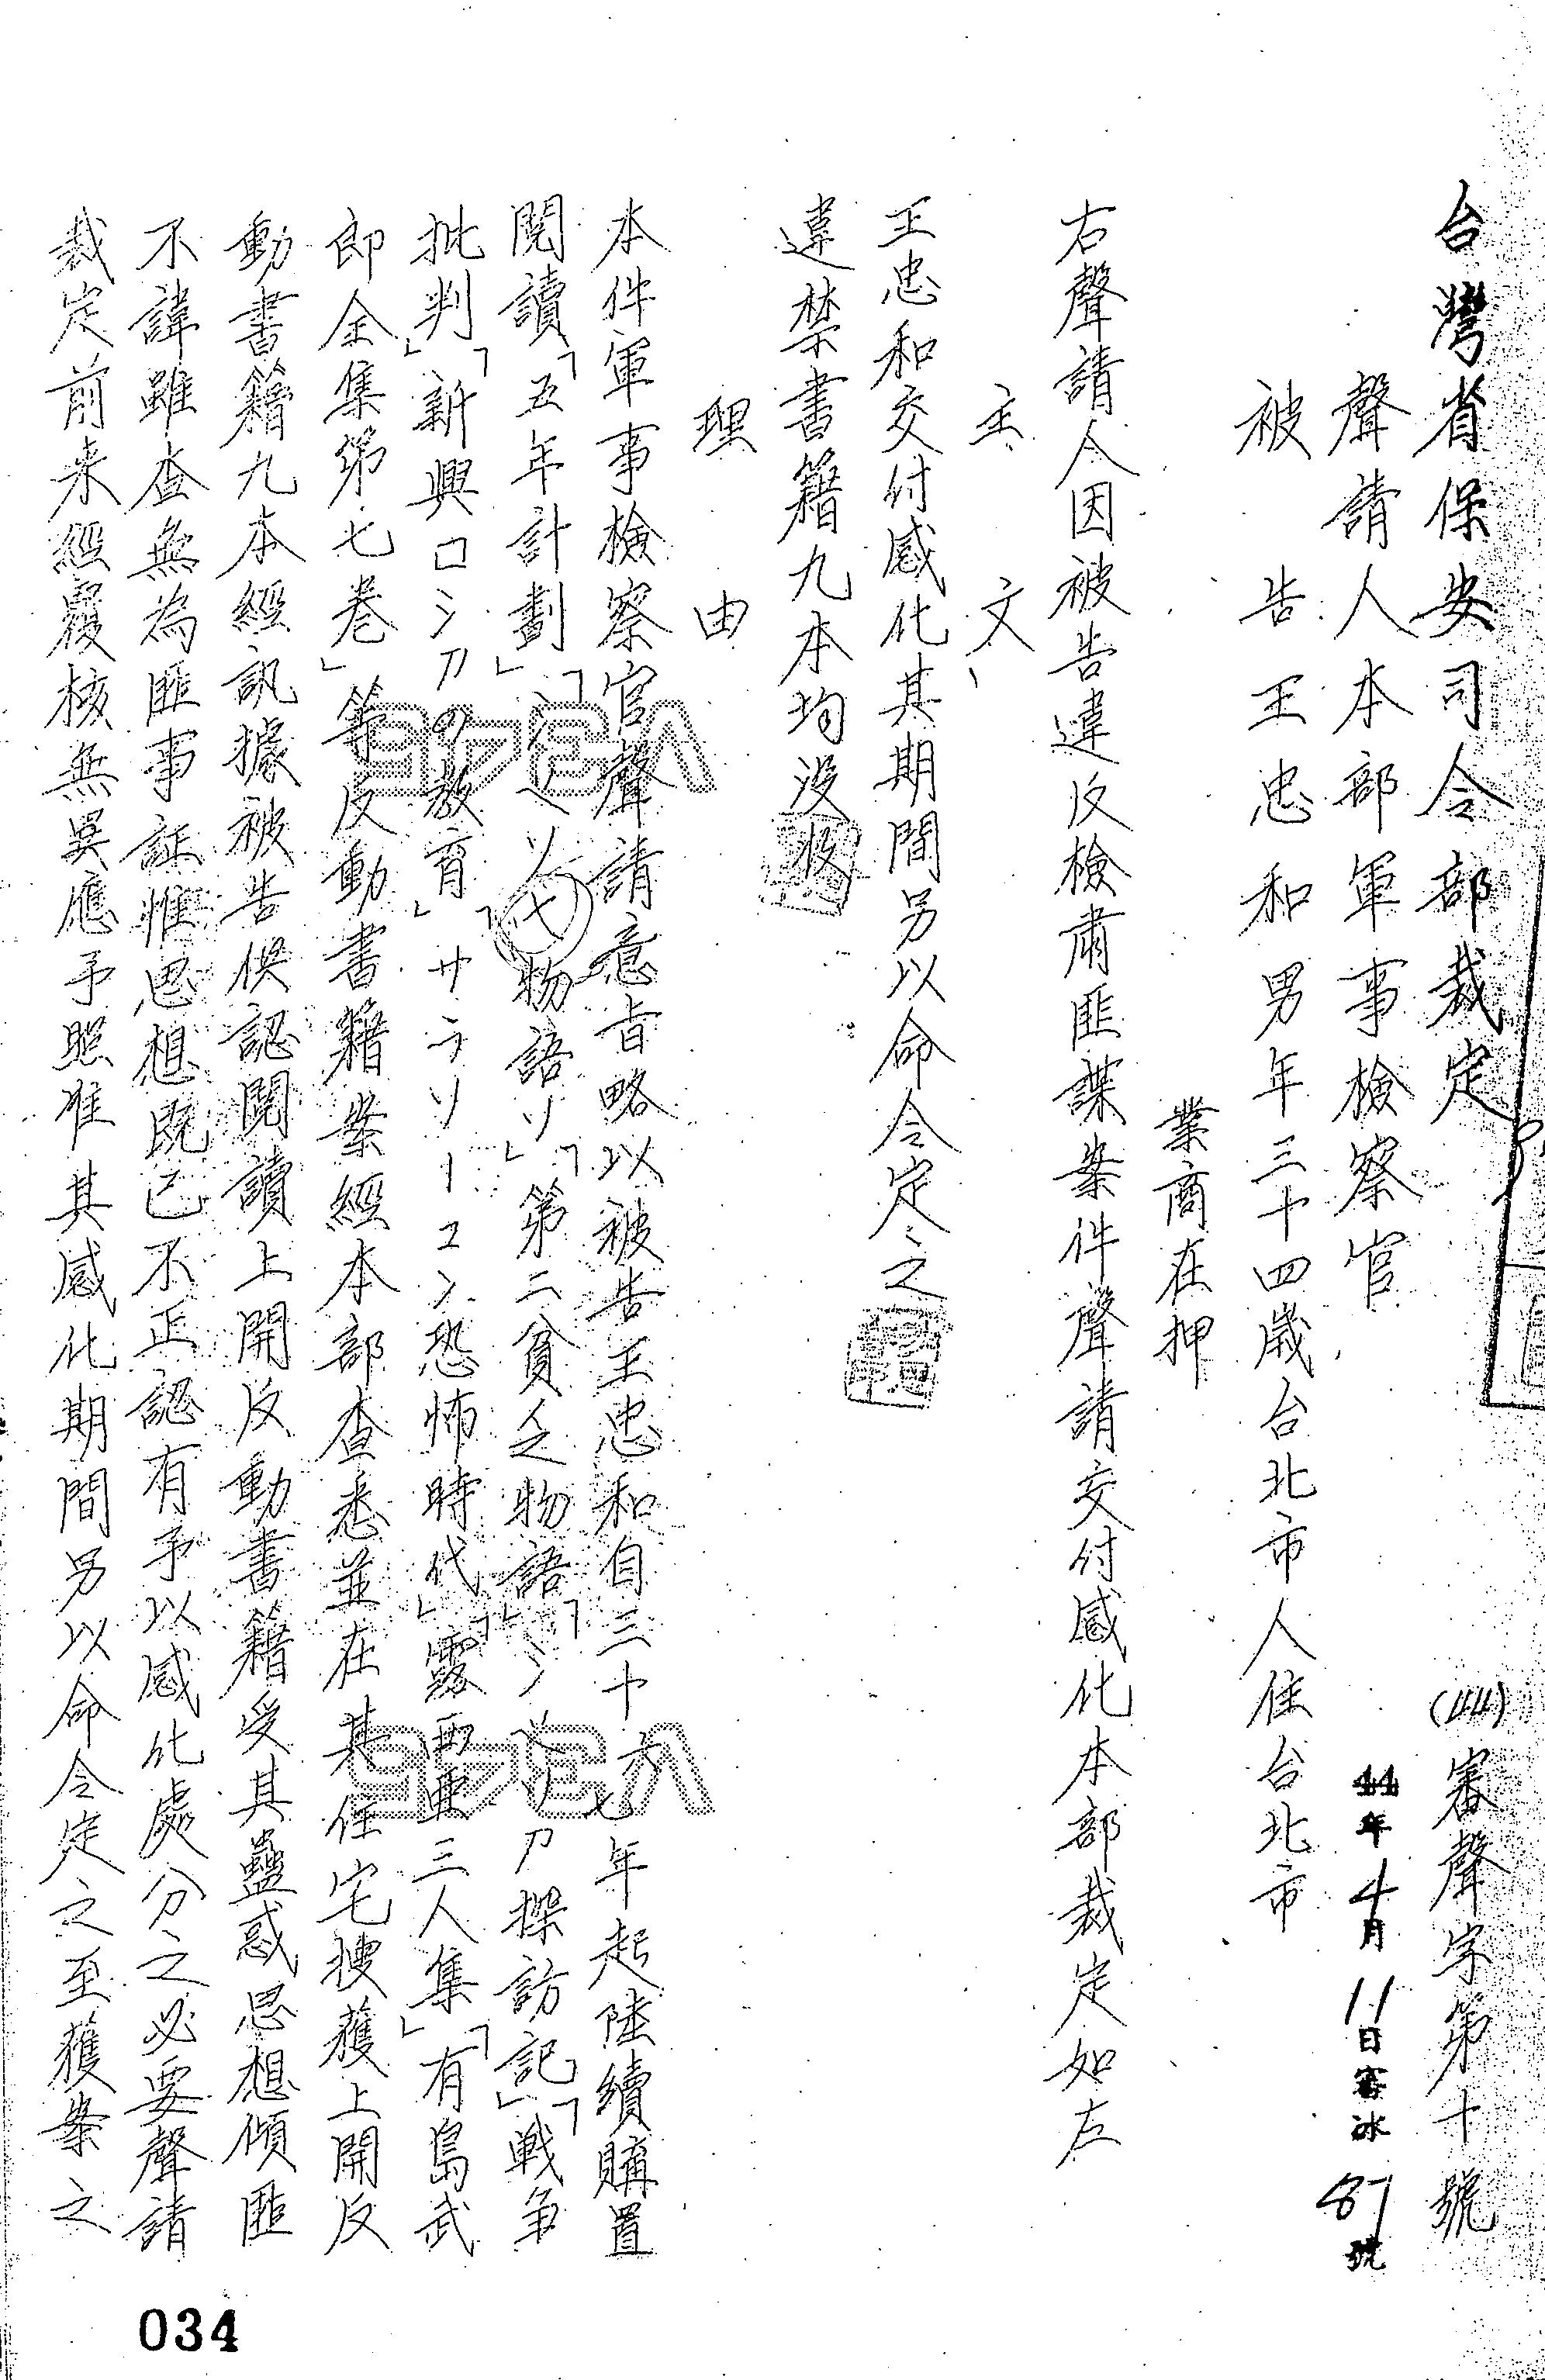 台灣省保安司令部裁定
(44)審聲字第十號
44年4月11日審冰87號
聲請人本部軍事檢察官
被告王忠和男年三十四歲台北市人住台北市
業商在押
右聲請人因被告違反檢肅匪諜案件聲請交付感化本部裁定如左
主文
王忠和交付感化其期間另以命令定之
違禁書籍九本均沒收
理由
本件軍事檢察官聲請意旨略以被告王忠和自三十六七年起陸續購置
閱讀「五年計劃」「 物語り」「第二貧乏物語」「 探訪記」「戰爭
批判」「新興ロシアの教育」「サラリーマン恐怖時代」「露西亜三人集」「有島武
郎全集第七卷」等反動書籍案經本部查悉並在其住宅搜獲上開反
動書籍九本經訊據被告供認閱讀上開反動書籍受其蠱惑思想傾匪
不諱雖查無為匪事証惟思想既已不正認有予以感化處分之必要聲請
裁定前來經覆核無異應予照准其感化期間另以命令定之至獲案之
034